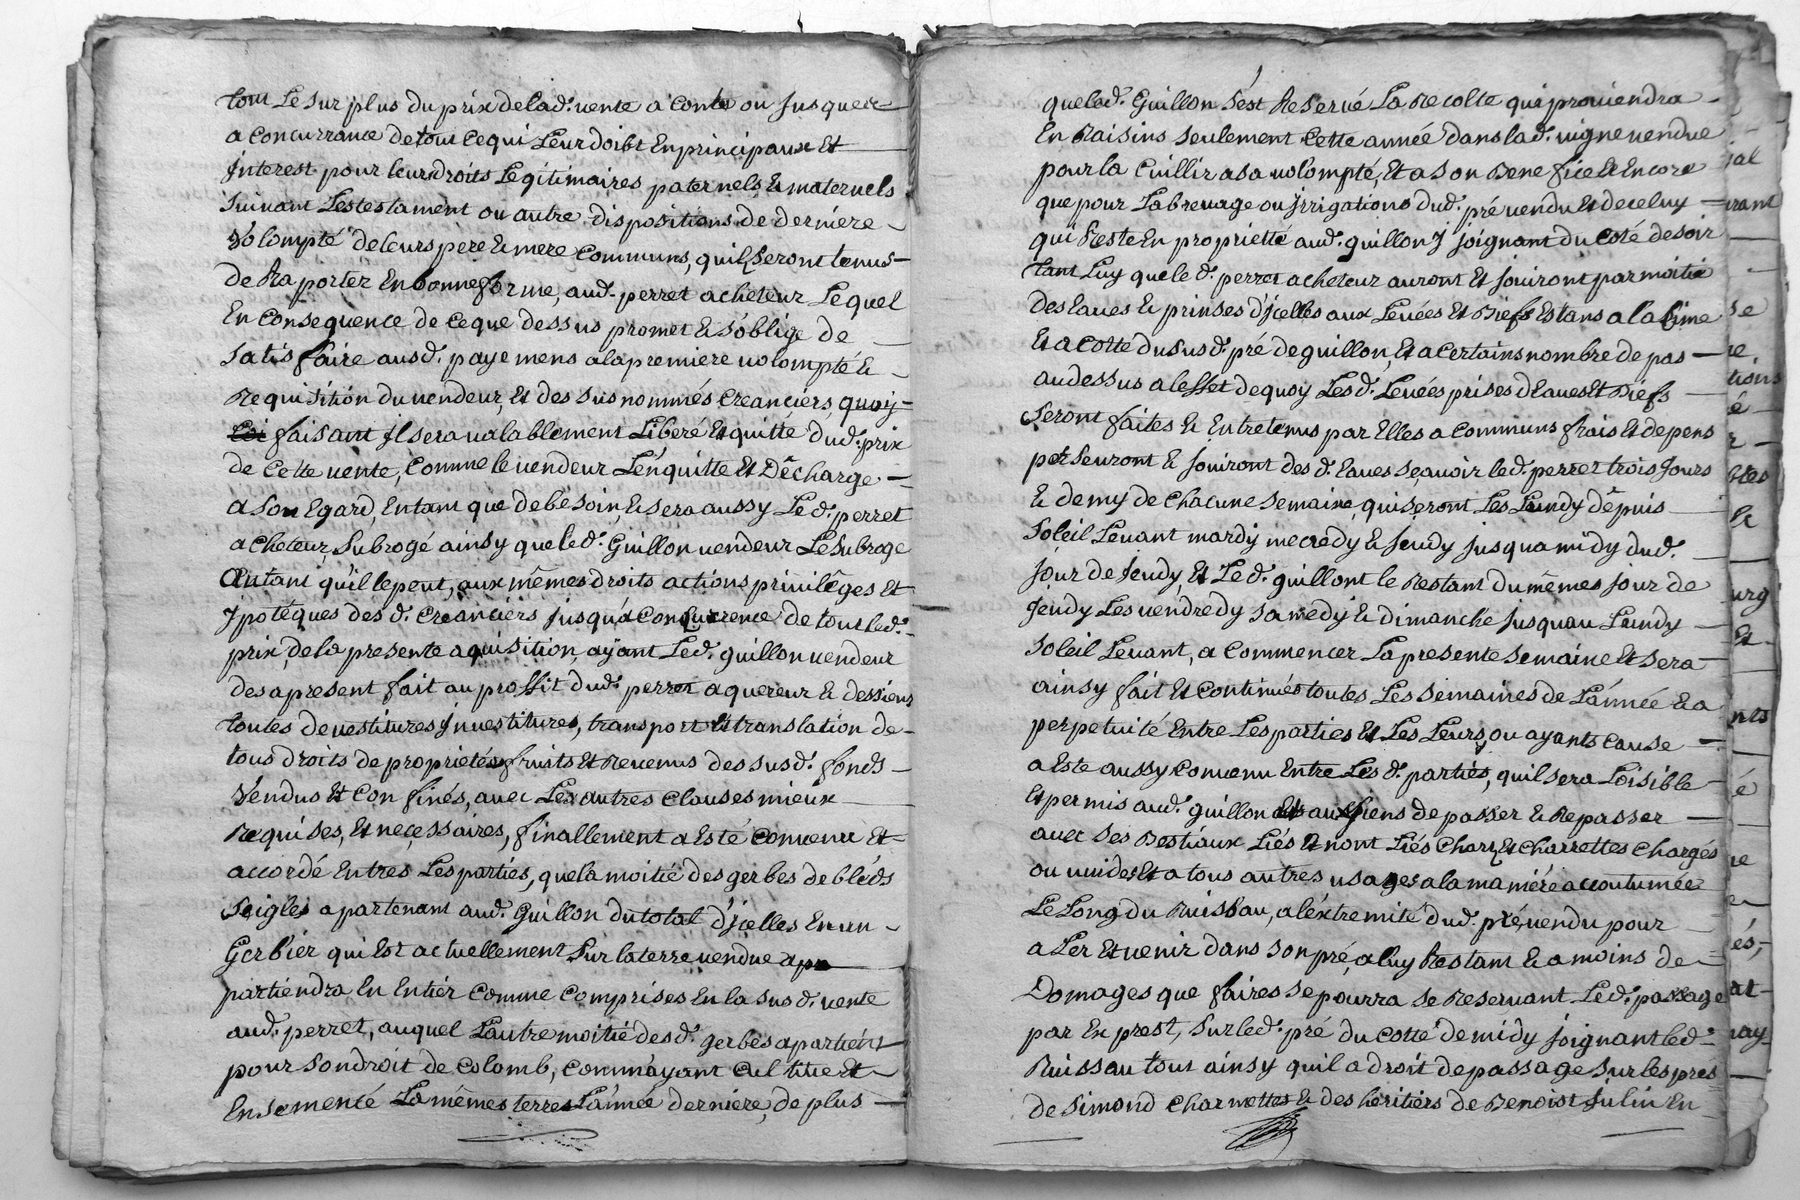 tout Le surplus du prix de lad. vente a conte ou Jusques
a concurrance de tout ce qui Leur doibt En principaux Et
Interest pour leurs droits Legitimaires paternels, & maternels
suivant Les testament ou autre dispositions de derniere
volompté de leurs pere & mere communs, quils seront tenus
de Raporter En bonne forme, aud. perret acheteur Lequel
En consequence de ce que dessus promet & s'oblige de
satisfaire ausd. payemens a la premiere volompté &
Requisition du vendeur, Et des susnommés creanciers, quoy
faisant Il sera valablement Liberé Et quitté dud. prix
de cette vente, comme le vendeur L'enquitte Et Décharge
a son Egard, En tant que de besoin, & sera aussy Led. perret
acheteur, subrogé ainsy que led. Guillon vendeur Le subroge
Autant qu'il le peut, aux mêmes droits actions privilêges Et
Ipotéques des d. creanciers Jusqu'a concurrence de tout led.
prix, de la presente aquisition, ayant Led. guillon vendeur
des apresent fait au proffit dud. perret aquereur & des siens
toutes devestitures Investitures, transport Et translation de
tous droits de proprietés fruits Et Revenus des susd. fonds
vendus Et confinés, avec Les autres clauses mieux
Requises, Et neçessaires, finallement a Esté convenu Et
accordé Entres Les partiés, que la moitié des gerbes de bléds
seigles apartenant aud. Guillon du total d'Icelles En un
Gerbier qui Est actuellement sur la terre vendue apa
partiendra En Entiér comme comprises En la susd. vente
aud. perret, auquel L'autre moitié des d. gerbes apartient
pour son droit de colomb, comm'ayant cultivé Et
Ensemencé La mêmes terres L'année derniere, de plus
que led. Guillon s'est Reservé La Recolte qui proviendra
En Raisins seulement cette année dans lad. vigne vendue
pour la Cuillir a sa volompté, Et a son Benefice & Encore
que pour L'abrevage ou Irrigations dud. pré vendu Et de celuy
qui Reste En proprietté aud. guillon Y Joignant du coté de soir
tant Luy que le d. perret acheteur auront Et Jouiront par moitié
des Eaues & prinses d'Icelles aux Levées Et Biefs Estans a la Cime
Et a cotté du susd. pré de guillon, Et a certains nombre de pas
audessus a l'effet de quoy Les d. Levées prises d'Eaues Et Biéfs
seront faites & Entretenus par Elles a communs frais Et depens
Et Jouiront des d. Eaues sçavoir led. perret trois Jours
& demy de chacune semaine, qui seront Les Lundy dépuis
Soleil Levant mardy mecredy & Jeudy Jusqu'a midy dud.
Jour de Jeudy, Et Led. guillont le Restant du mêmes Jour de
Jeudy Les vendredy samedy & dimanche Jusqu'au Lundy
soleil Levant, a commencer La presente semaine Et sera
ainsy fait Et continués toutes Les semaines de L'année & a
perpetuité Entre Les parties Et Les Leurs, ou ayants cause
a Este aussy convenu Entre Les d. parties, qu'il sera Loisible
Et permis aud. guillon Et aux siens de passer & Repasser
avec ses Bestiaux Liés Et nont Liés Charz Et charrettes chargés
ou vuides Et a tous autres usages a la maniére accoutumée
Le Long du Ruissau, a l'extremité dud. pré, vendu pour
aLer Et venir dans son pré, a luy Restant & a moins de
Domages que faires se pourra se Reservant Led. passage
par Exprest, sur led. pré du cotté de midy Joignant led.
Ruissau tout ainsy qu'il a droit de passage sur les prés
de Simond Charmettes & des héritiérs de Benoist Julin En